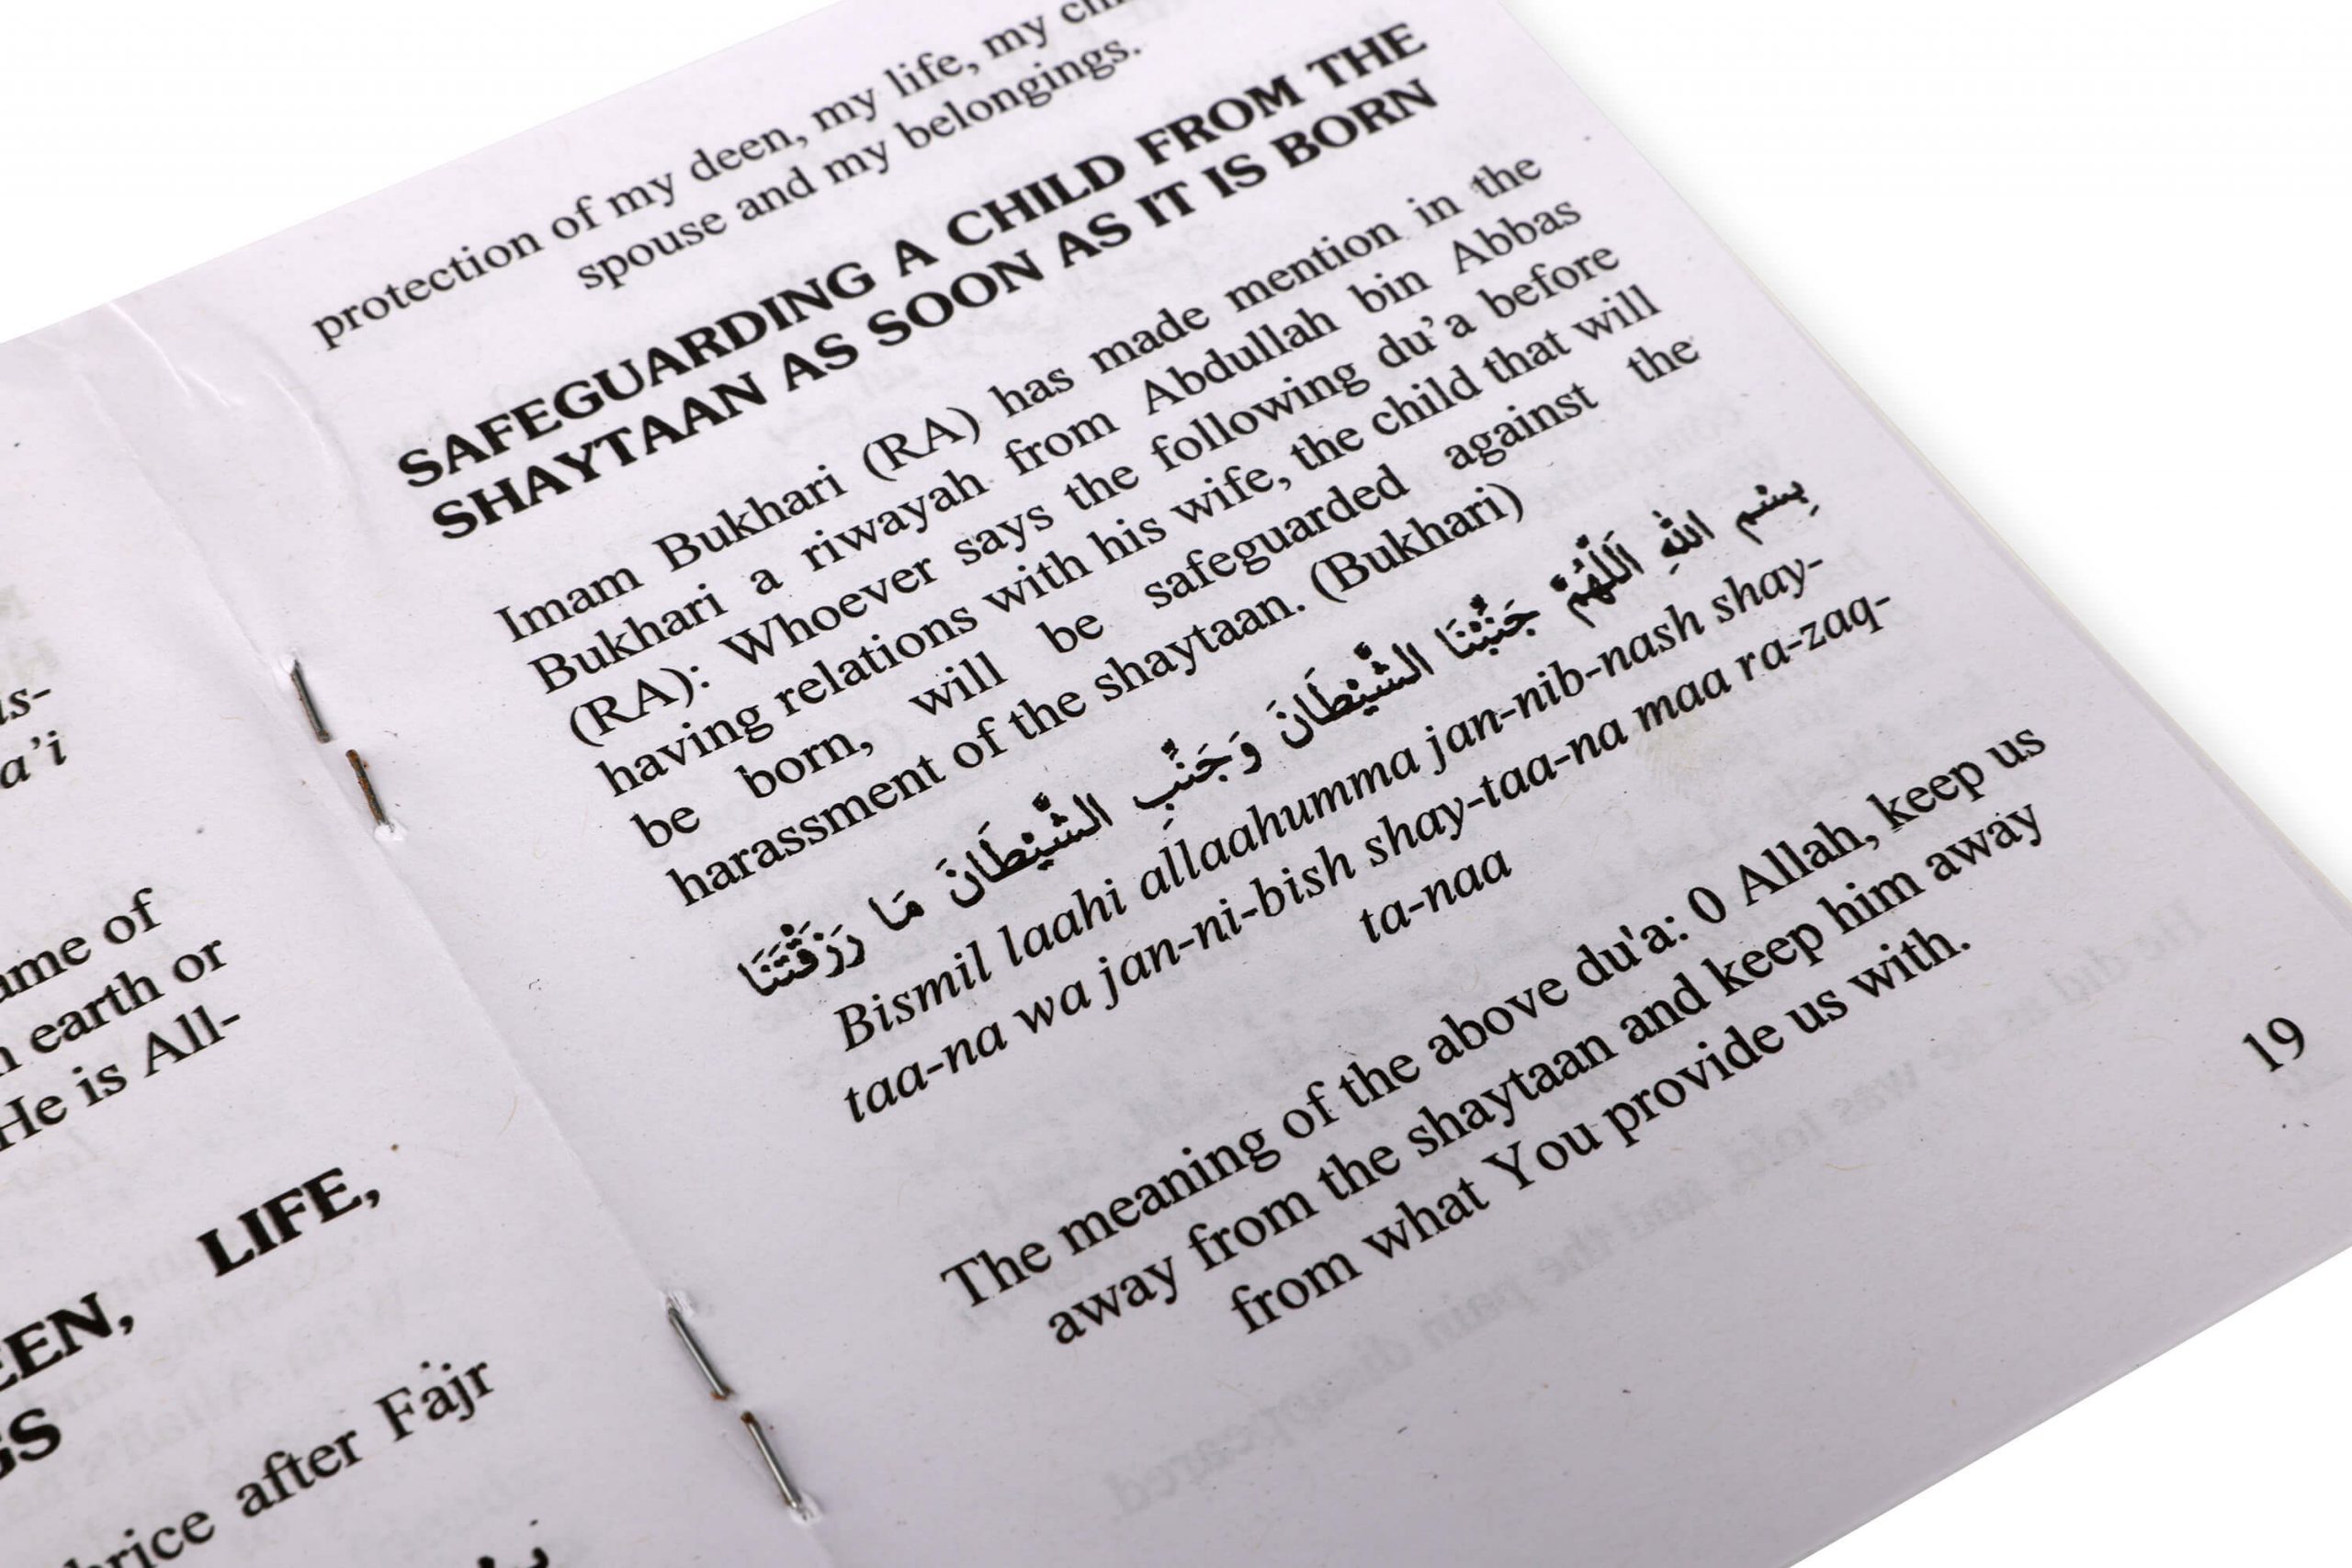 is-
a'i
ame of
earth or
He is All-
LIFE,
EEN,
GS
hrice after Fajr
protection of my deen, my life, my
spouse and my belongings.
SAFEGUARDING A CHILD FROM THE
SHAYTAAN AS SOON AS IT IS BORN
Imam Bukhari (RA) has made mention in the
Bukhari a riwayah from Abdullah bin Abbas
(RA): Whoever says the following du'a before
having relations with his wife, the child that will
be born, will be safeguarded against the
harassment of the shaytaan. (Bukhari)
بِسْمِ اللهِ اَللّٰهُمَّ جَنِّبْنَا الشَّيْطَانَ وَجَنِّبِ الشَّيْطَانَ مَا رَزَقْتَنَا
Bismil laahi allaahumma jan-nib-nash shay-
taa-na wa jan-ni-bish shay-taa-na maa ra-zaq-
ta-naa
The meaning of the above du'a: 0 Allah, keep us
away from the shaytaan and keep him away
from what You provide us with.
19